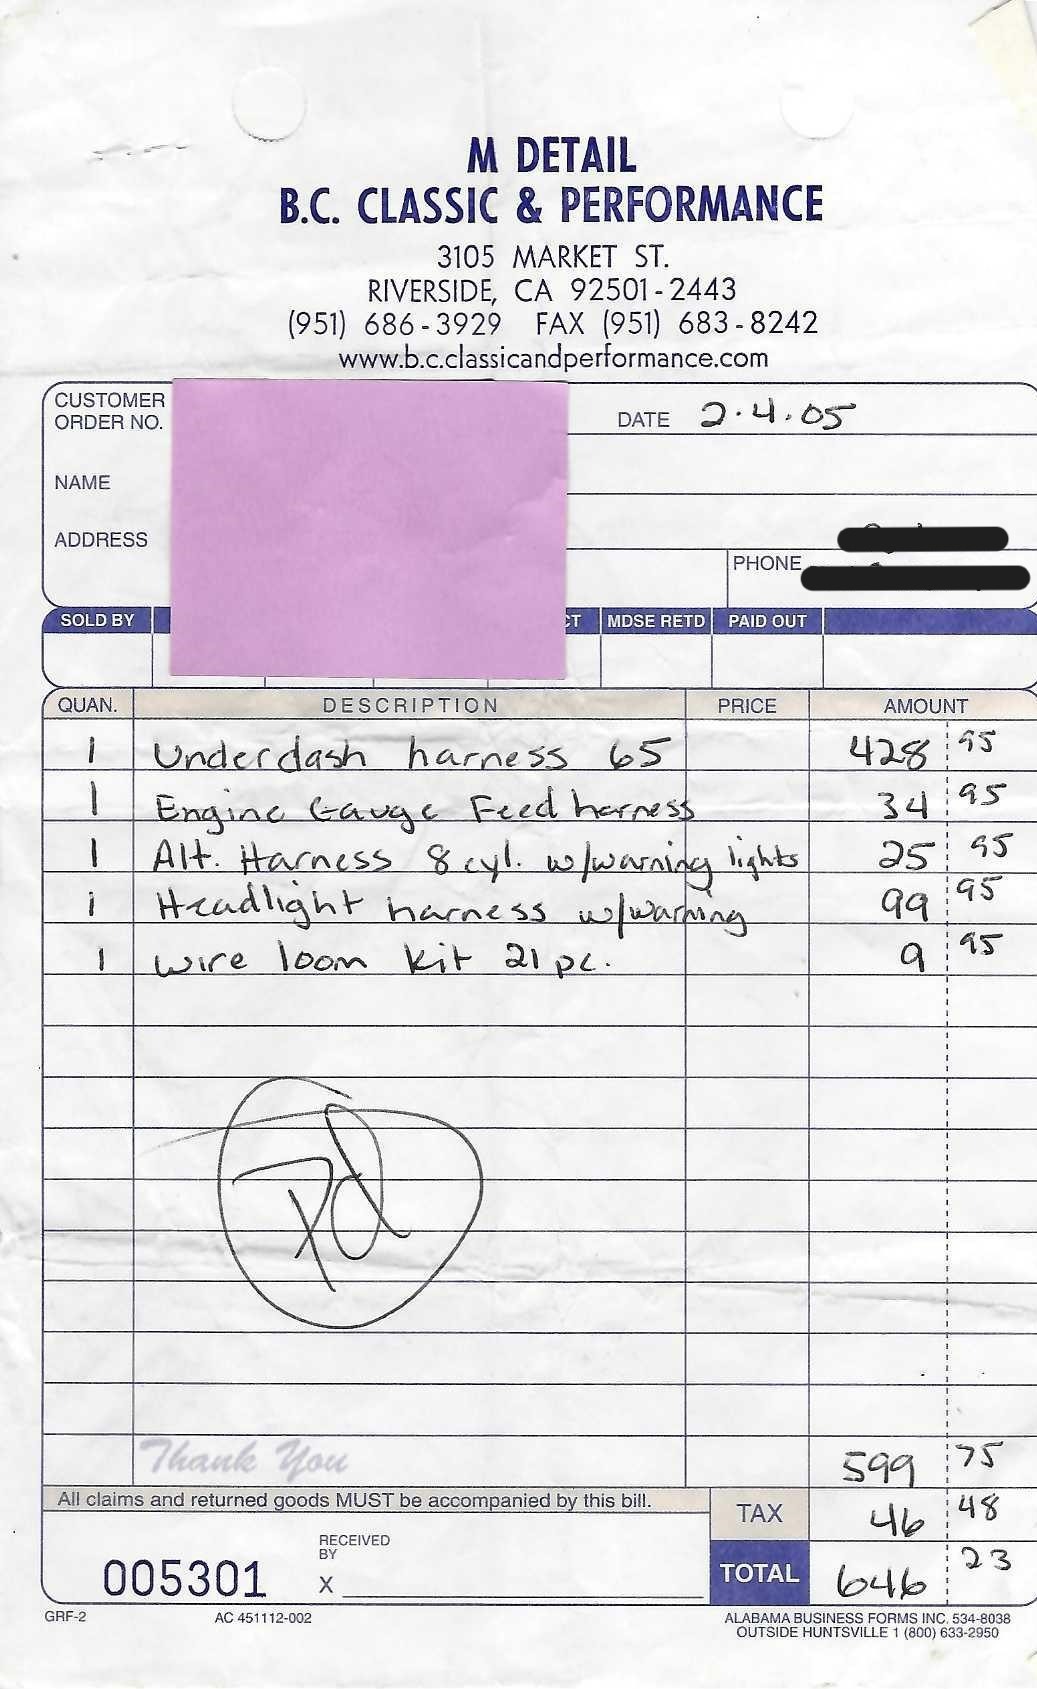 M DETAIL
B.C. CLASSIC & PERFORMANCE
3105 MARKET ST.
RIVERSIDE, CA 92501-2443
(951) 686-3929 FAX (951) 683-8242
www.b.c.classicandperformance.com
CUSTOMER ORDER NO.
DATE 2.4.05
NAME
ADDRESS
PHONE
SOLD BY CT MDSE RETD PAID OUT
QUAN. DESCRIPTION PRICE AMOUNT
1 Underdash harness 65 428 95
1 Engine Gauge Feed harness 34 95
1 Alt. Harness 8 cyl. w/warning lights 25 95
1 Headlight harness w/warning 99 95
1 wire loom kit 21 pc. 9 95
Pd
Thank You 599 75
All claims and returned goods MUST be accompanied by this bill.
TAX 46 48
005301
RECEIVED BY
X
TOTAL 646 23
GRF-2 AC 451112-002 ALABAMA BUSINESS FORMS INC. 534-8038
OUTSIDE HUNTSVILLE 1 (800) 633-2950